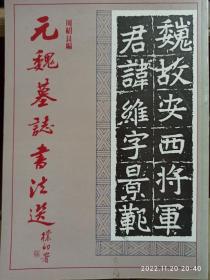 周紹良編
元魏墓誌書法選
樸初署
魏故安西將軍
君諱維字景範
2022.11.20 20:40